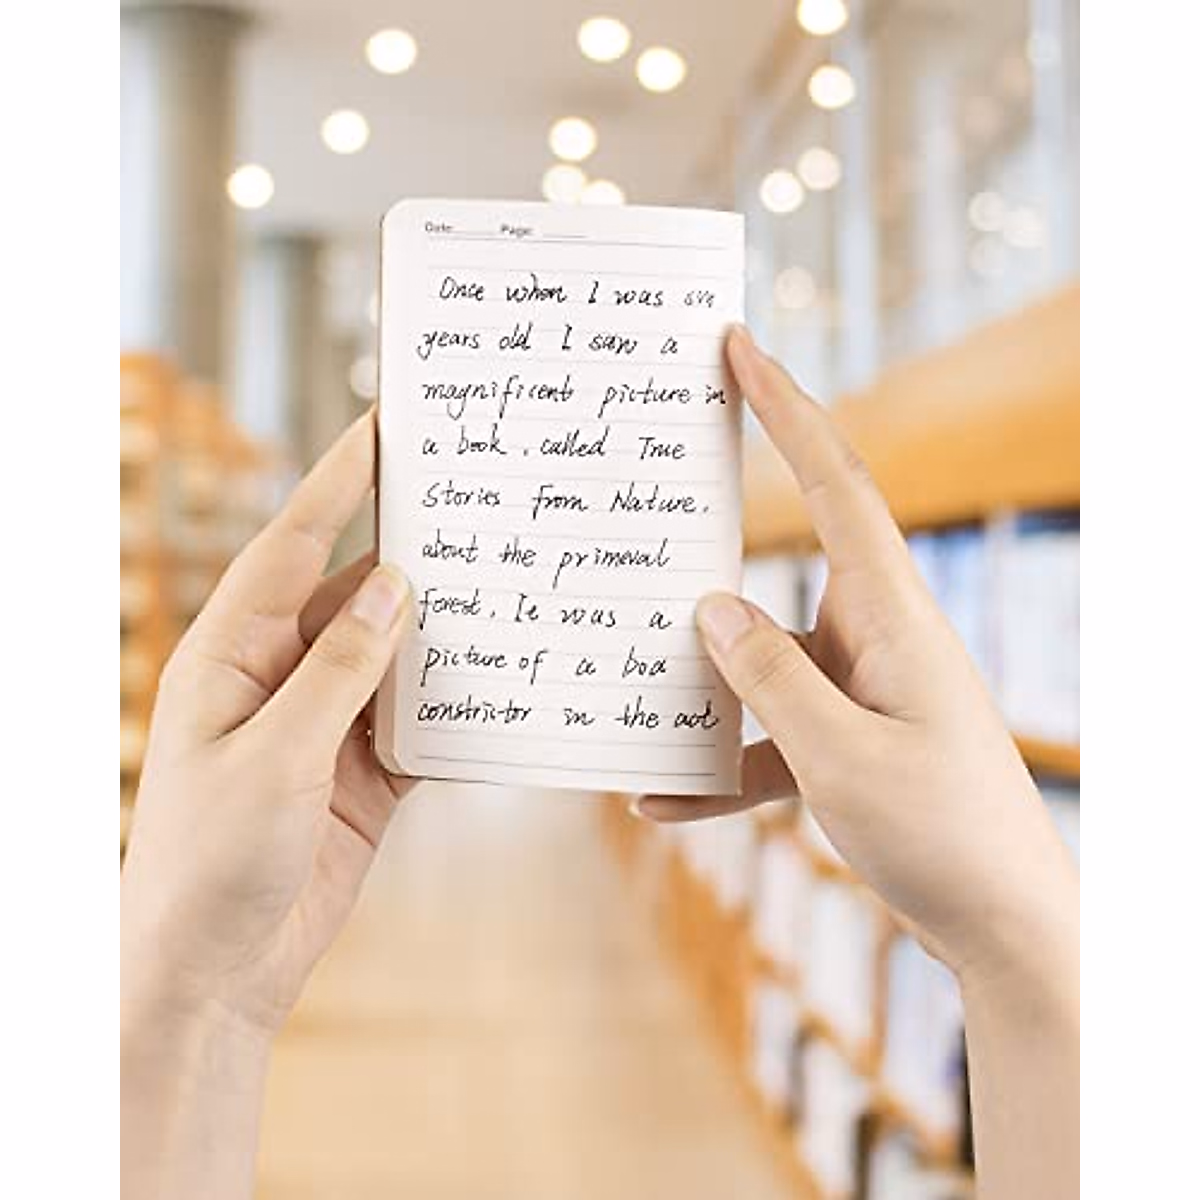 Date: Page:
Once when I was six
years old I saw a
magnificent picture in
a book, called True
Stories from Nature,
about the primeval
forest. It was a
picture of a boa
constrictor in the act